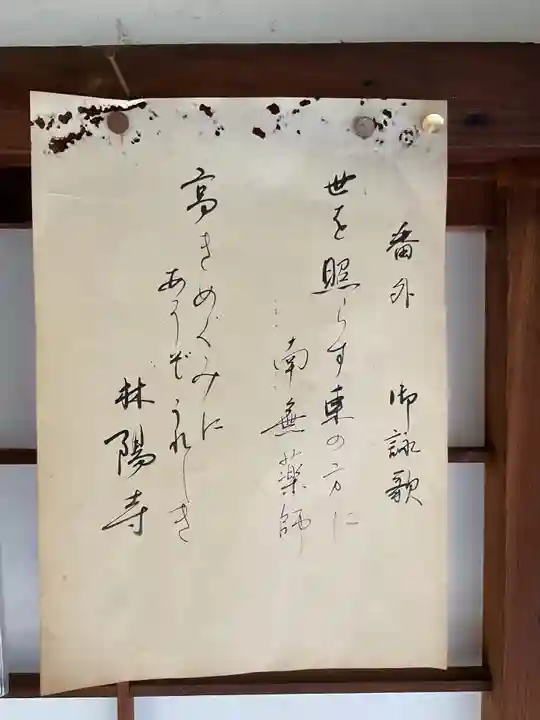 番外 御詠歌
世を照らす東の方に
南無薬師
高きめぐみに
あうぞうれしき
林陽寺